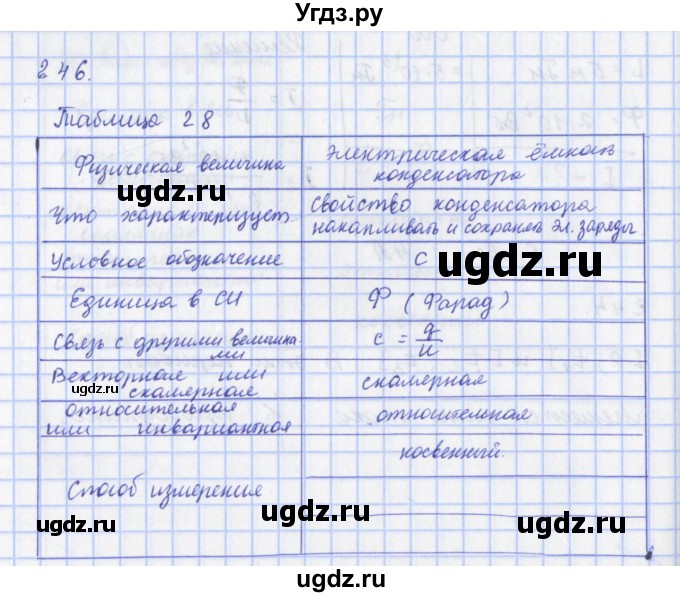 Уздам.ру
246.
Таблица 28
Физическая величина
Электрическая ёмкость
конденсатора
ugdz.ru
ugdz.ru
Что характеризует
Свойство конденсатора
накапливать и сохранять эл. заряды
Условное обозначение
С
ugdz.ru
Единица в СИ
Ф (Фарад)
Связь с другими величина
ми
c = q/u
Векторная или
скалярная
ugdz.ru
скалярная
относительная
или инвариантная
относительная
Способ измерения
косвенный.
ugdz.ru
ugdz.ru
ugdz.ru